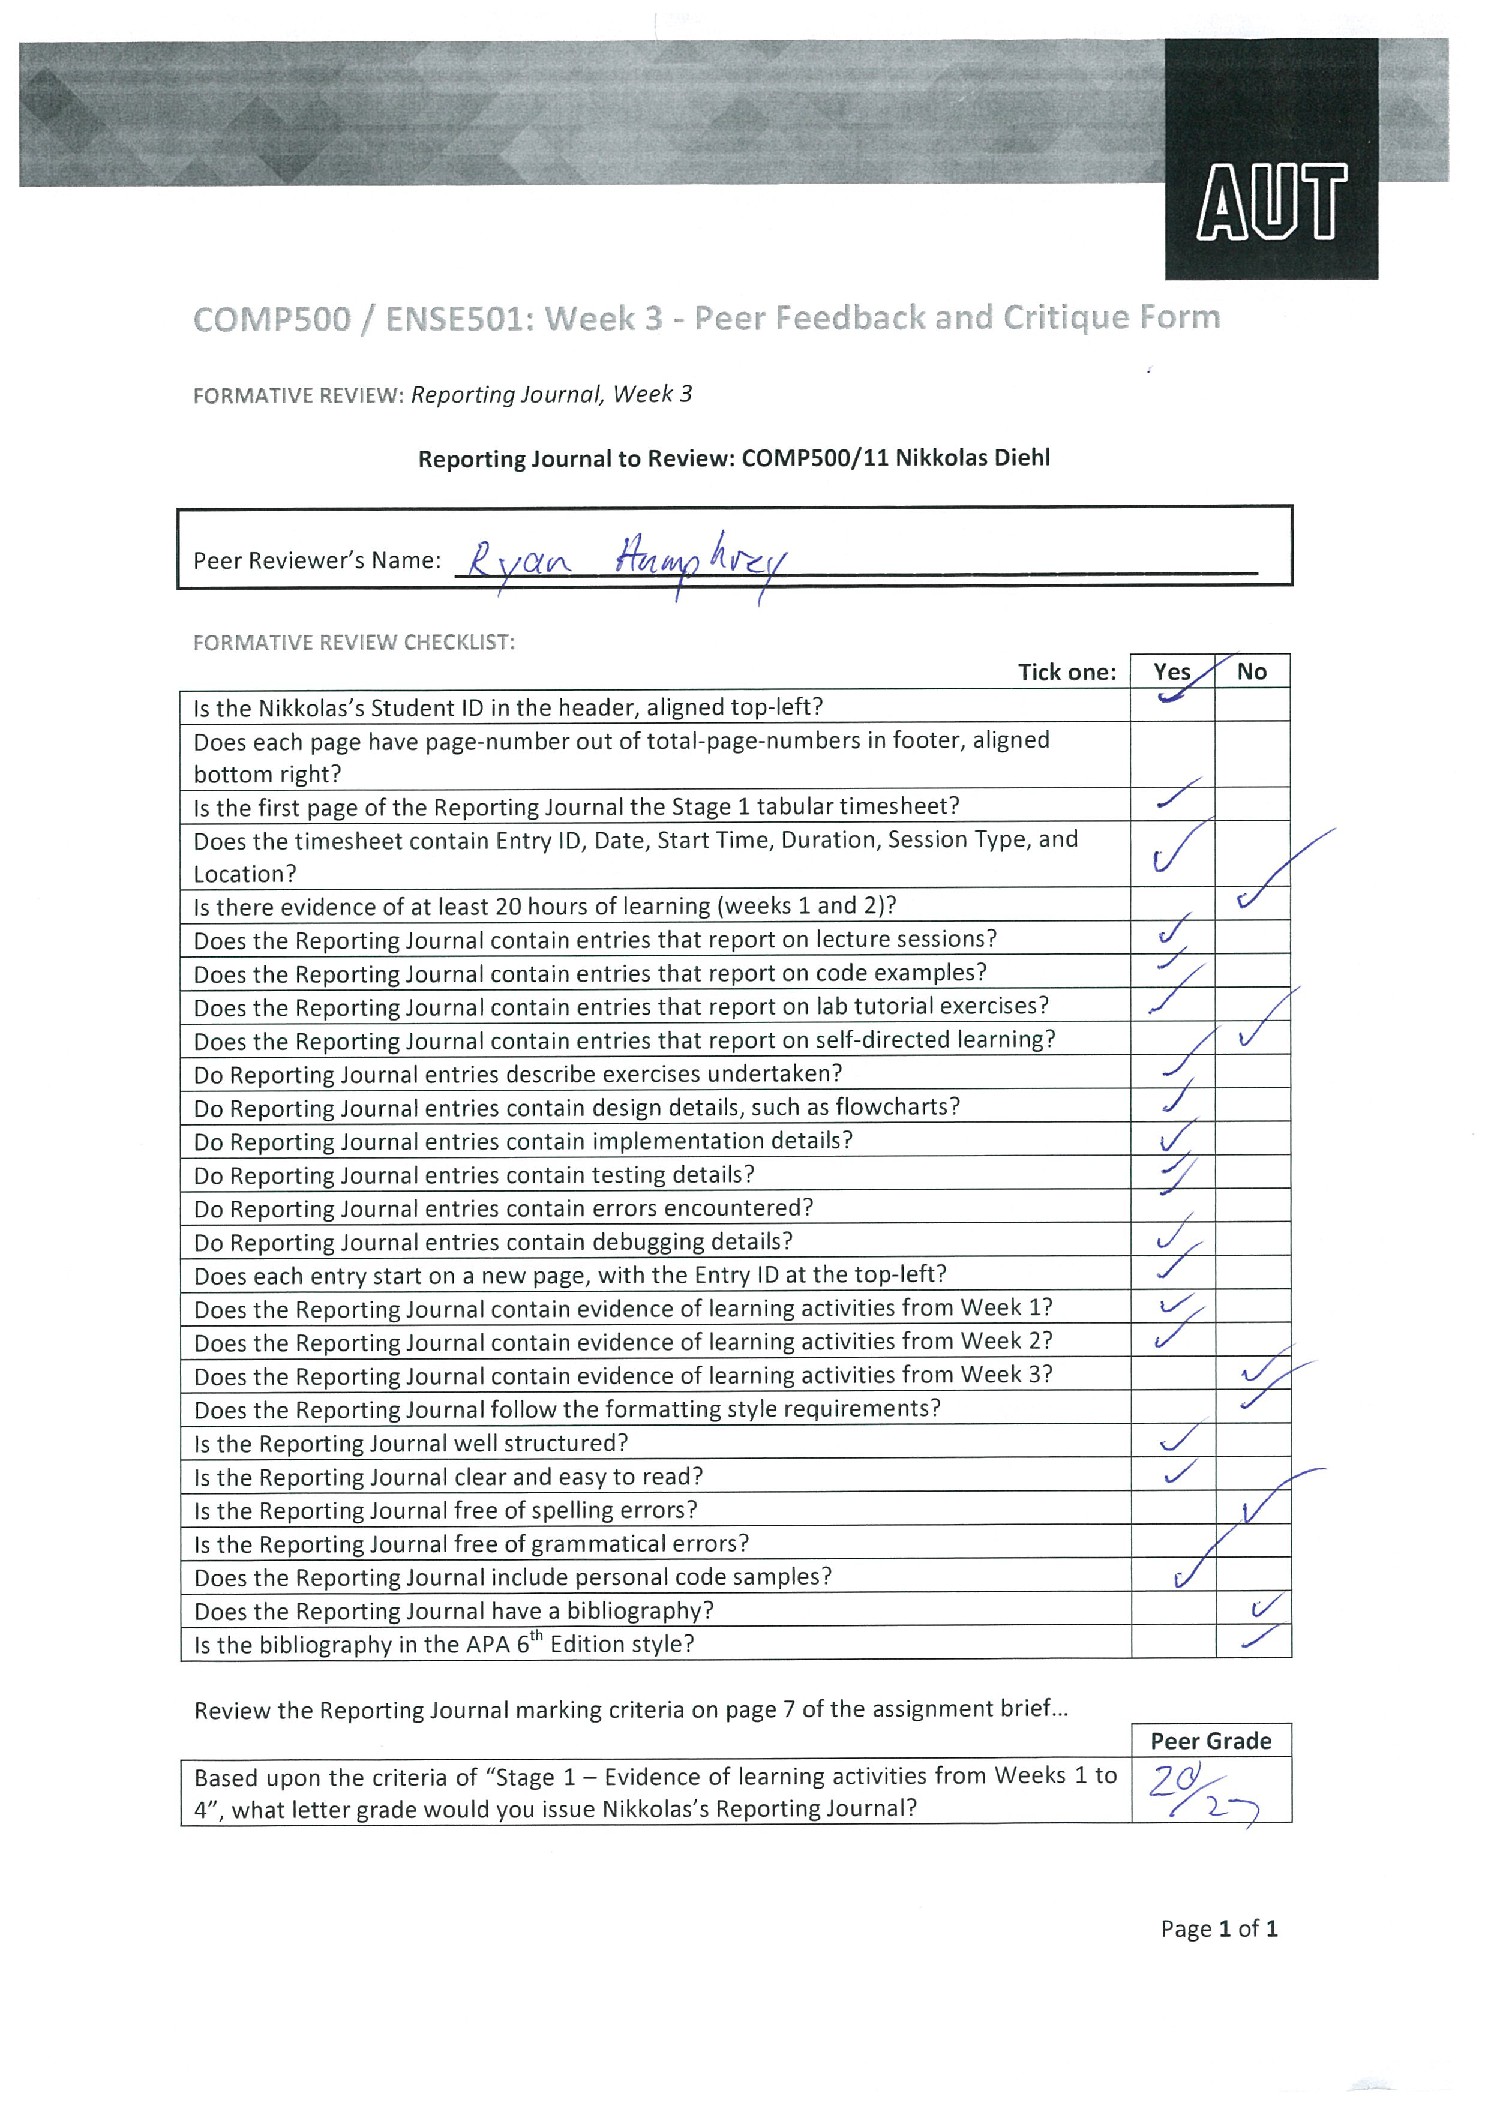 AUT
COMP500 / ENSE501: Week 3 - Peer Feedback and Critique Form
FORMATIVE REVIEW: Reporting Journal, Week 3
Reporting Journal to Review: COMP500/11 Nikkolas Diehl
Peer Reviewer's Name: Ryan Humphrey
FORMATIVE REVIEW CHECKLIST:
Tick one: Yes No
Is the Nikkolas's Student ID in the header, aligned top-left? ✓
Does each page have page-number out of total-page-numbers in footer, aligned
bottom right?
Is the first page of the Reporting Journal the Stage 1 tabular timesheet? ✓
Does the timesheet contain Entry ID, Date, Start Time, Duration, Session Type, and
Location? ✓
Is there evidence of at least 20 hours of learning (weeks 1 and 2)? ✓
Does the Reporting Journal contain entries that report on lecture sessions? ✓
Does the Reporting Journal contain entries that report on code examples? ✓
Does the Reporting Journal contain entries that report on lab tutorial exercises? ✓
Does the Reporting Journal contain entries that report on self-directed learning? ✓
Do Reporting Journal entries describe exercises undertaken? ✓
Do Reporting Journal entries contain design details, such as flowcharts? ✓
Do Reporting Journal entries contain implementation details? ✓
Do Reporting Journal entries contain testing details? ✓
Do Reporting Journal entries contain errors encountered?
Do Reporting Journal entries contain debugging details? ✓
Does each entry start on a new page, with the Entry ID at the top-left? ✓
Does the Reporting Journal contain evidence of learning activities from Week 1? ✓
Does the Reporting Journal contain evidence of learning activities from Week 2? ✓
Does the Reporting Journal contain evidence of learning activities from Week 3? ✓
Does the Reporting Journal follow the formatting style requirements? ✓
Is the Reporting Journal well structured? ✓
Is the Reporting Journal clear and easy to read? ✓
Is the Reporting Journal free of spelling errors? ✓
Is the Reporting Journal free of grammatical errors?
Does the Reporting Journal include personal code samples? ✓
Does the Reporting Journal have a bibliography? ✓
Is the bibliography in the APA 6th Edition style? ✓
Review the Reporting Journal marking criteria on page 7 of the assignment brief...
Peer Grade
Based upon the criteria of "Stage 1 – Evidence of learning activities from Weeks 1 to
4", what letter grade would you issue Nikkolas's Reporting Journal?
20/27
Page 1 of 1